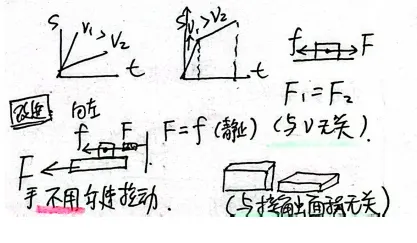 S v₁>v₂ t
S v₁>v₂ t
f F
F₁=F₂
改进 向左
f F F=f(静止)(与V无关).
F
手 不用匀速拉动.
(与接触面积无关)